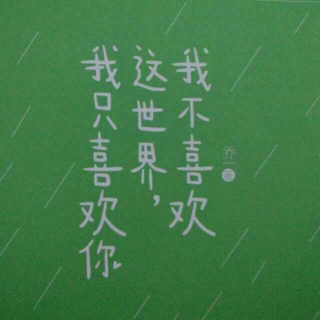 我不喜欢
这世界，
我只喜欢你
乔一 著